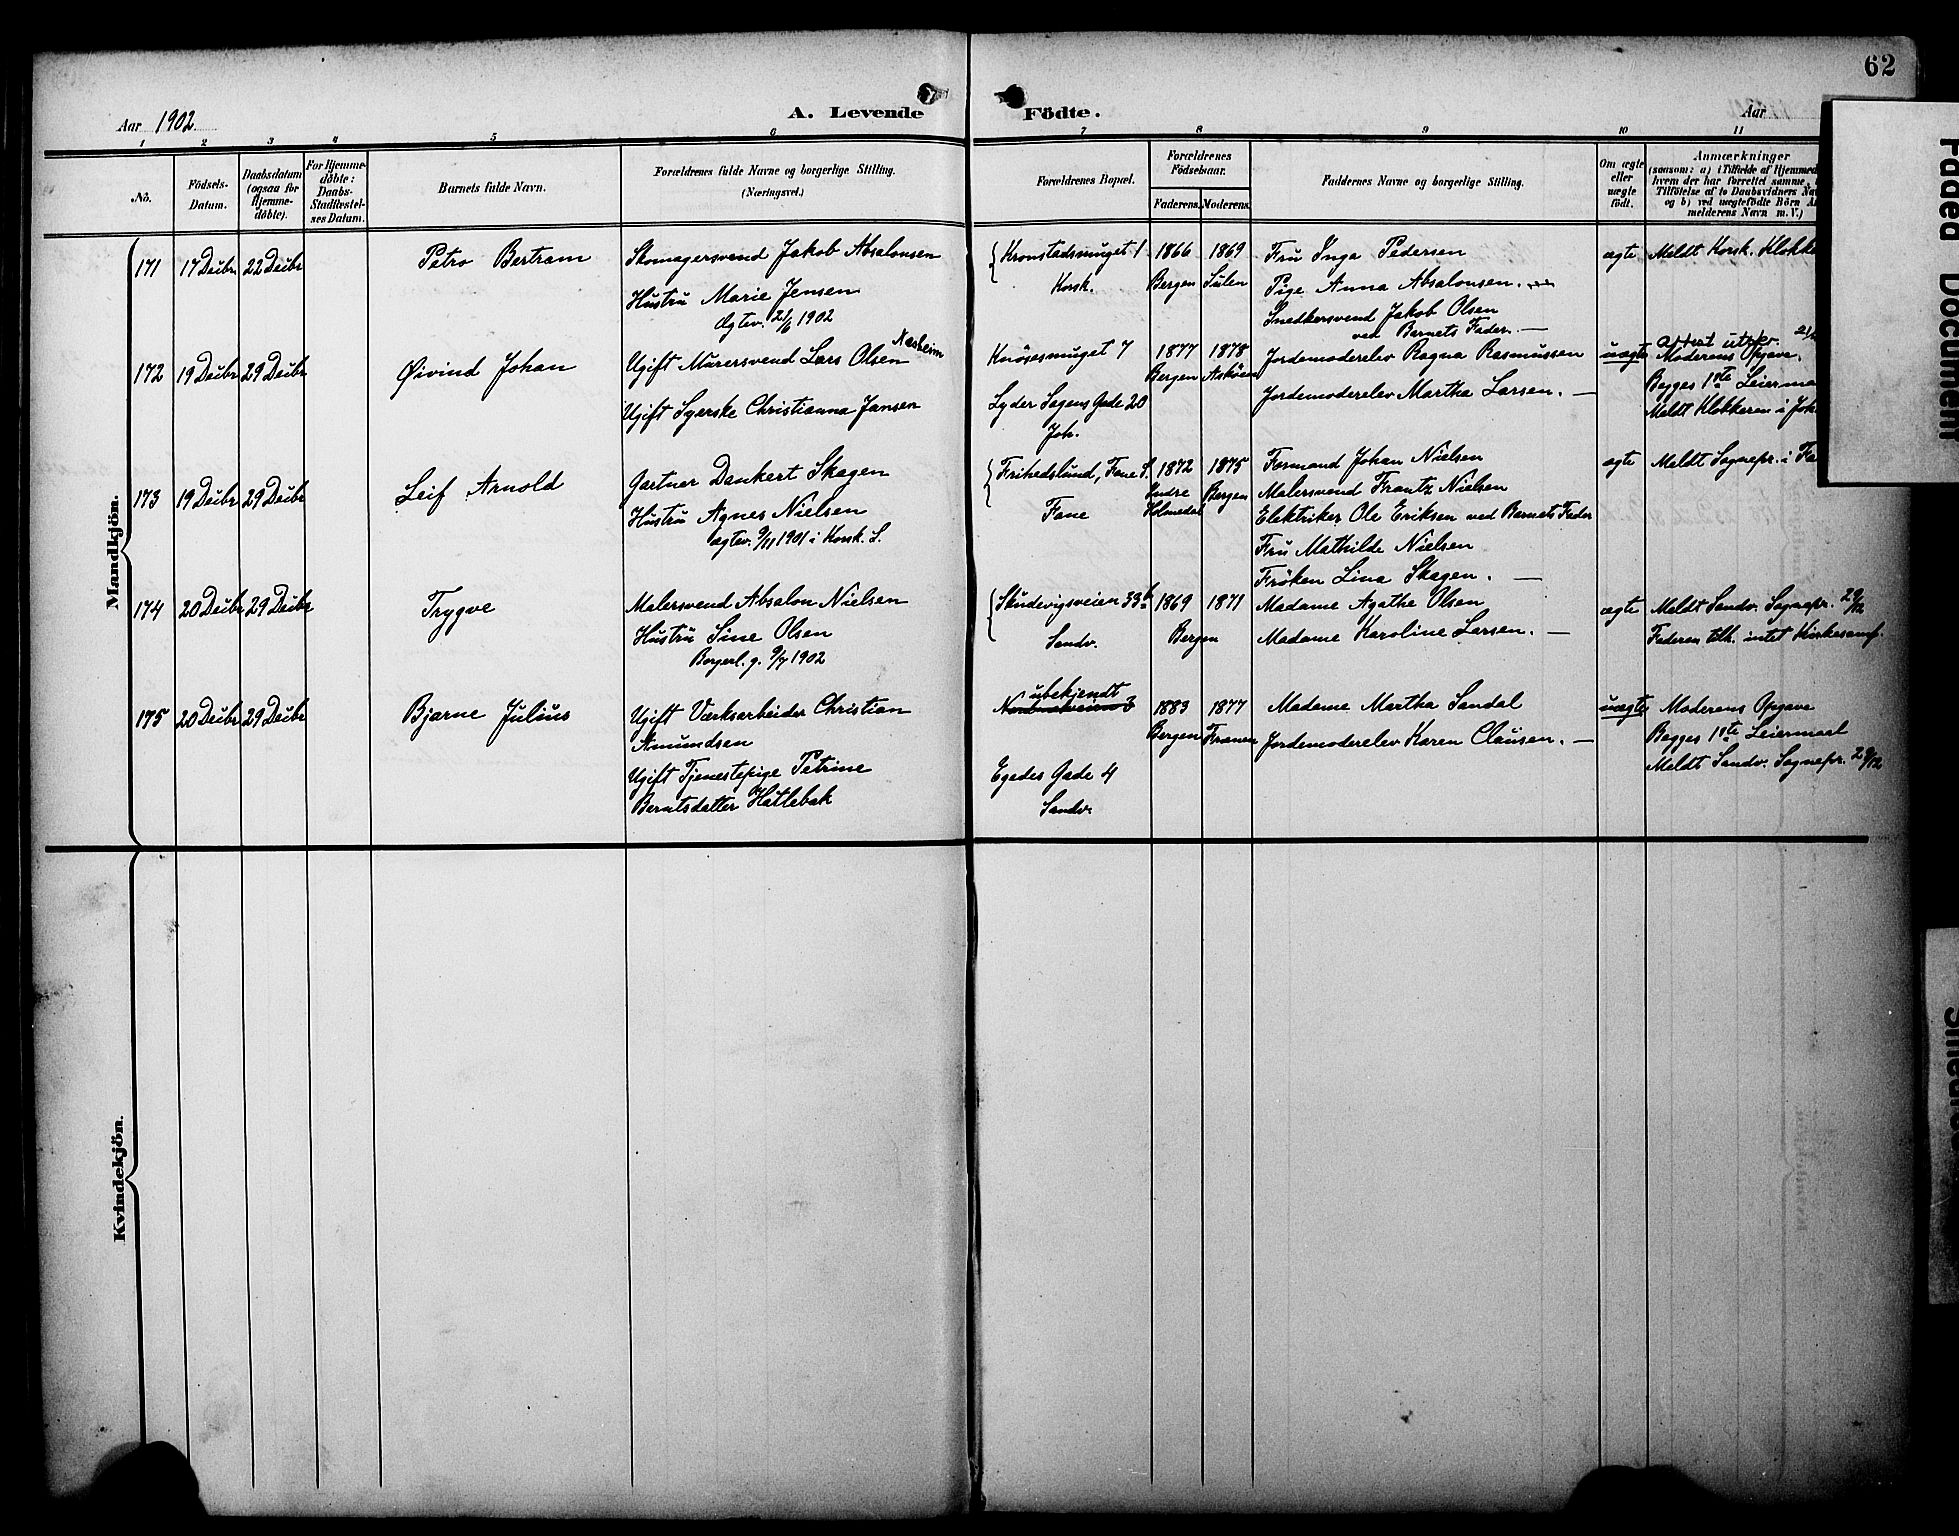 62
Aar 1902
A. Levende Födte.
Aar
1 2 3 4 5 6 7 8 9 10 11
No.
Födsels-Datum.
Daabsdatum (ogsaa for Hjemme-döbte).
For Hjemme-döbte: Daabs-Stadfæstel-ses Datum.
Barnets fulde Navn.
Forældrenes fulde Navne og borgerlige Stilling.
(Næringsvei.)
Forældrenes Bopæl.
Forældrenes Födselsaar.
Faderens. Moderens.
Faddernes Navne og borgerlige Stilling.
Om ægte eller uægte födt.
Anmærkninger
(saasom: a) i Tilfælde af Hjemmed
hvem der har forrettet samme,
Tilföielse af to Daabsvidners Na
og b) ved uægtefödte Börn A
melderens Navn m. V.)
Mandkjön.
171 17 Decbr 22 Decbr Petro Bertram
Skomagersvend Jakob Absalonsen
Hustru Marie Jensen
Ægtev. 21/6 1902
Kronstadsmuget 1
Korsk.
1866 Bergen
1869 Sulen
Fru Inga Pedersen
Pige Anna Absalonsen.
Snedkersvend Jakob Olsen
ved Barnets Fader. —
ægte
Meldt Korsk. Klokke
172 19 Decbr 29 Decbr Øivind Johan
Ugift Murersvend Lars Olsen Næsheim
Ugift Syerske Christianna Jansen
Knösesmuget 7
Lyder Sagens Gade 20
Joh.
1877 Bergen
1878 Askøen
Jordemoderelev Ragna Rasmussen
Jordemoderelev Martha Larsen. —
uægte
attest utskr. 21/
Moderens Opgave.
Begges 1ste Leierma
Meldt Klokkeren i Joh
173 19 Decbr 29 Decbr Leif Arnold
Gartner Dankert Skagen
Hustru Agnes Nielsen
ægtev. 9/11 1901 i Korsk. S.
Frihedslund, Fane S.
Fane
1872 Indre Holmedal
1875 Bergen
Formand Johan Nielsen
Malersvend Frantz Nielsen
Elektriker Ole Eriksen ved Barnets Fader
Fru Mathilde Nielsen
Fröken Lina Skagen. —
ægte
Meldt Sognepr. i Fa
174 20 Decbr 29 Decbr Trygve
Malersvend Absalon Nielsen
Hustru Sine Olsen
Borgerl. g. 9/7 1902
Skudevigsveien 33b
Sandv.
1869 1871
Bergen
Madame Agathe Olsen
Madame Karoline Larsen. —
ægte
Meldt Sandv. Sognepr. 29/12
Faderen tilh. intet Kirkesamf.
175 20 Decbr 29 Decbr Bjarne Julius
Ugift Værksarbeider Christian
Amundsen
Ugift Tjenestepige Petrine
Berntsdatter Hatlebak
ubekjendt
Egedes Gade 4
Sandv.
1883 Bergen
1877
Madame Martha Sandal
Jordemoderelev Karen Clausen. —
uægte
Moderens Opgave
Begges 1ste Leiermaal
Meldt Sandv. Sognepr. 29/12
Kvindekjön.
Faded Document